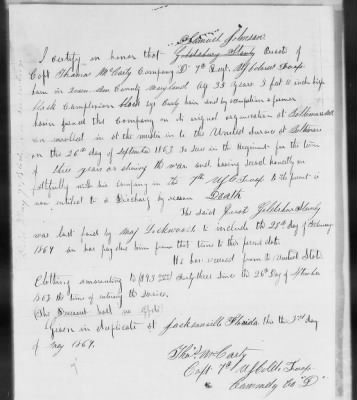 Samuel Johnson
I certify on honor that Goldsbury Stanly Private of
Capt Thomas McCarty Company D 7th Regt US Colored Troops
born in Queen Ann County Maryland Age 33 years 5 feet 10 inches high
Black Complexion Black Eyes Curly hair and by occupation a farmer
having joined this Company on its original organization at Baltimore
was enrolled in at the muster in to the United Service at Baltimore
on the 26th day of September 1863 to serve in the Regiment for the term
of three years or during the war and having served honestly and
faithfully with his company in the 7th USC Troops to the present is
now entitled to a Discharge by reason Death
The said Stanly
was last paid by Maj Lockwood to include the 28th day of February
1864 and has pay due him from that time to this present date
He has received from the United States
Clothing amounting to Forty three Since the 26th day of September
1863 the time of entering the service.
The Deceased had no
Given in duplicate at Jacksonville Florida this the 3rd day
of May 1864.
Thos McCarty
Capt 7th US Cold Troops
Commdg Co "D"